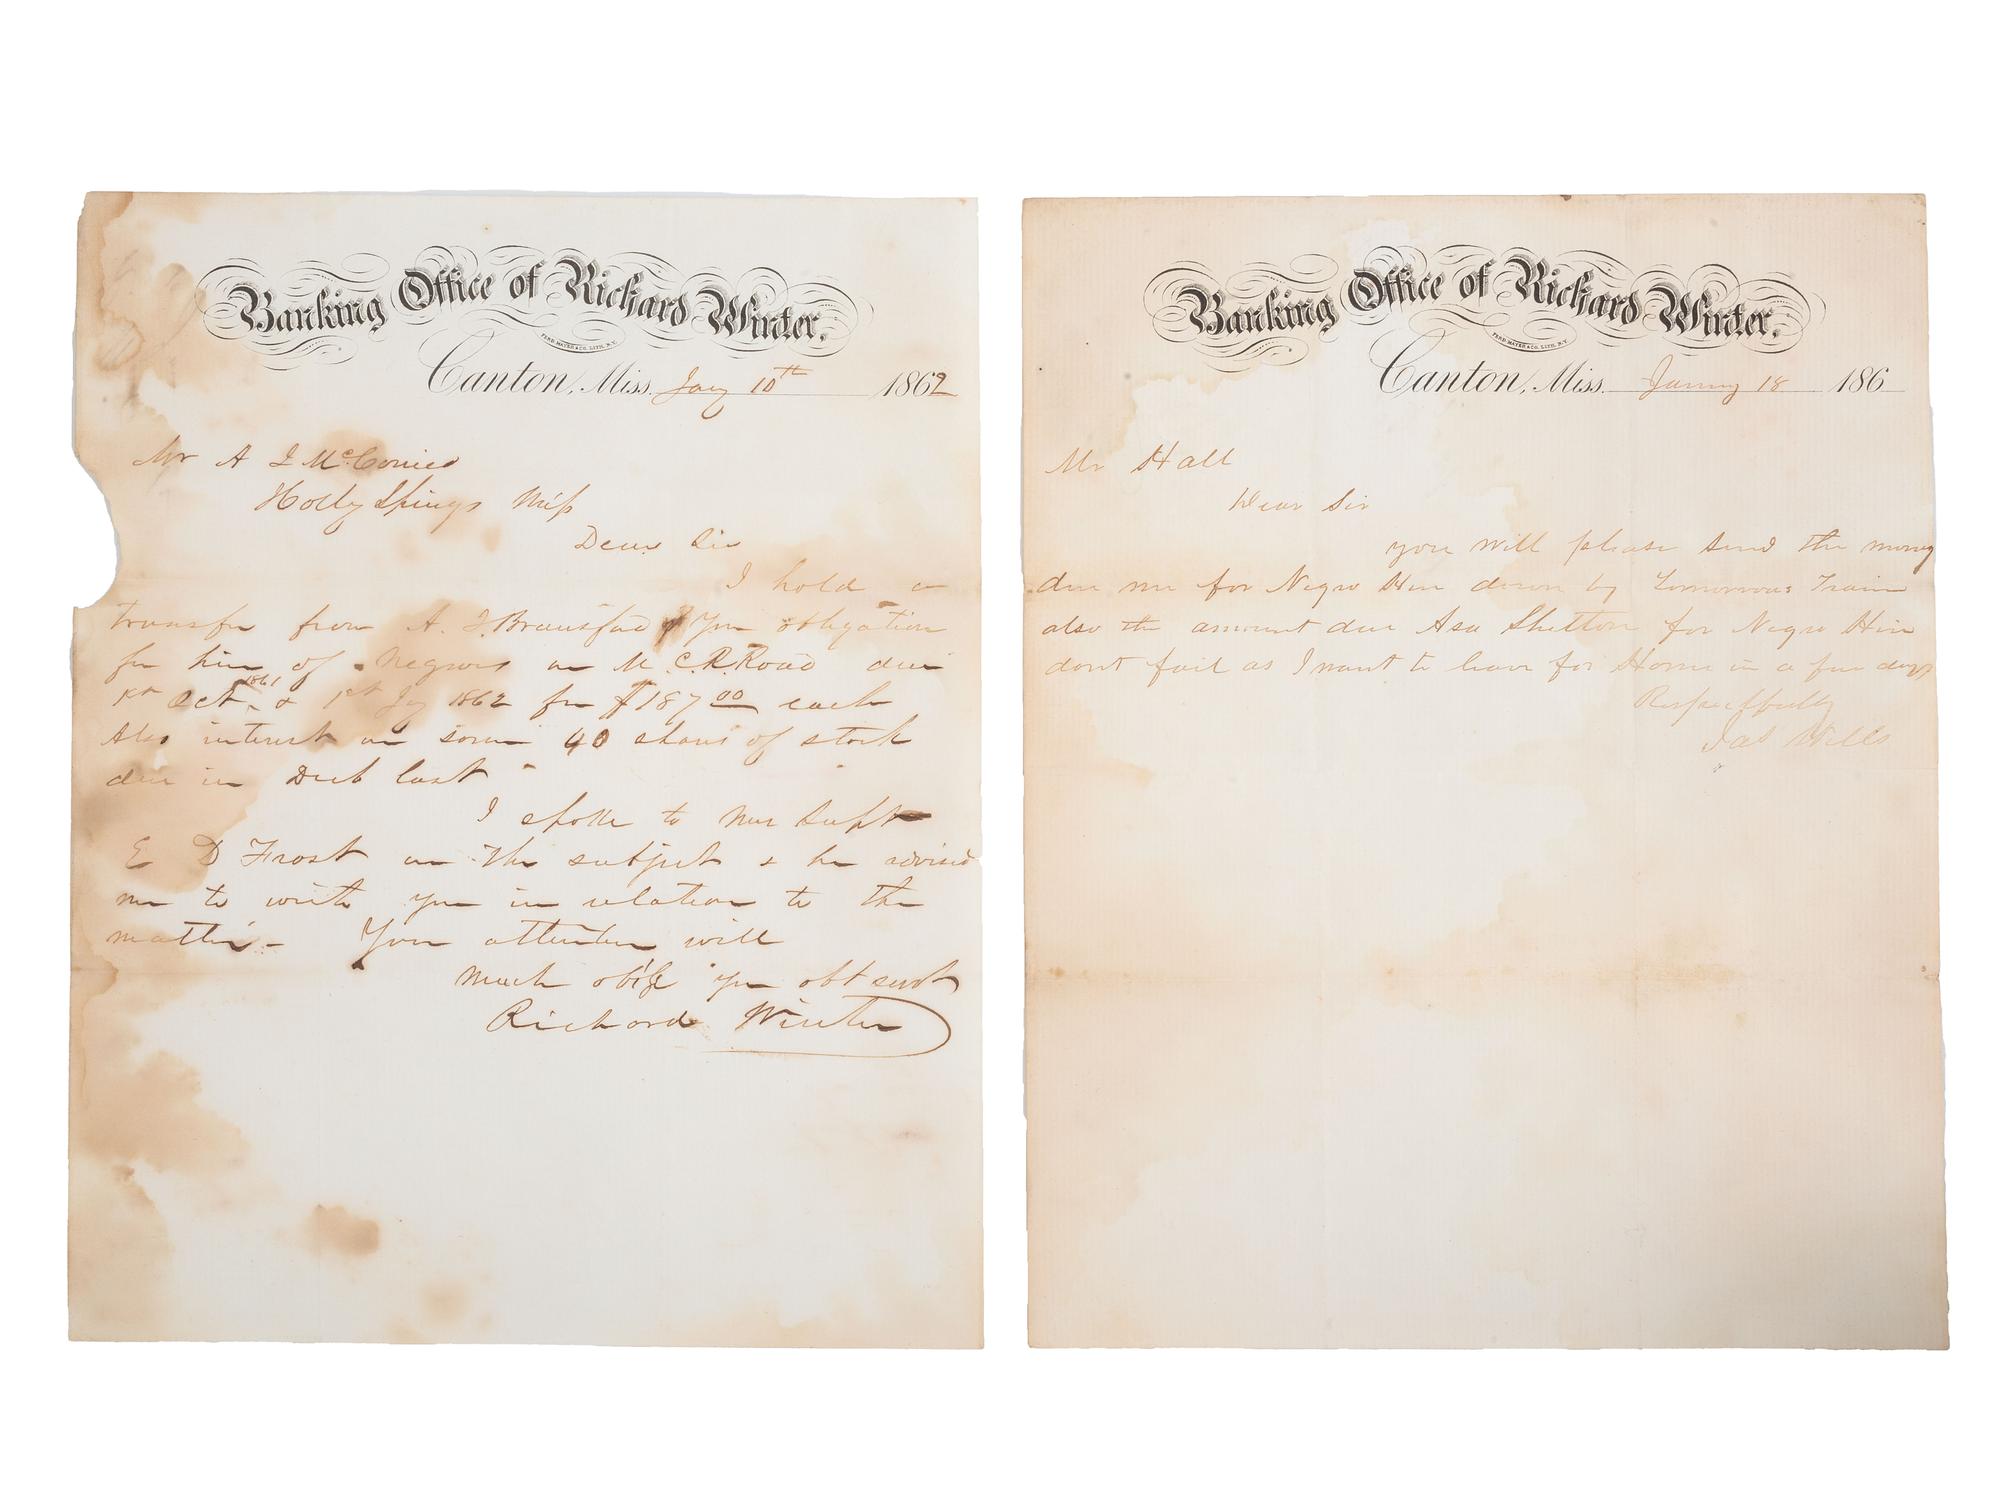 Banking Office of Richard Winter.
FERD. MAYER & CO. LITH. N.Y.
Canton, Miss. Jay 10th 1862
Mr A J McConico
Holly Springs Miss
Dear Sir
I hold a
transfer from A. J. Bransford of Your obligation
for hire of Negroes on M C. R. Road due
1st Oct. 1861 & 1st Jay 1862 for $187 00 each
Also interest on some 40 shares of stock
due in Decb last
I spoke to Mr Supt
E D Frost on the subject & he advised
me to write you in relation to the
matter - Your attention will
much oblige your obt servt
Richard Winter
Banking Office of Richard Winter.
FERD. MAYER & CO. LITH. N.Y.
Canton, Miss. January 18 186
Mr Hall
Dear Sir
you will please send the money
due me for Negro Hire down by Tomorrows Train
also the amount due Asa Shelton for Negro Hire
dont fail as I want to leave for Home in a few days
Respectfully
Jas Wells